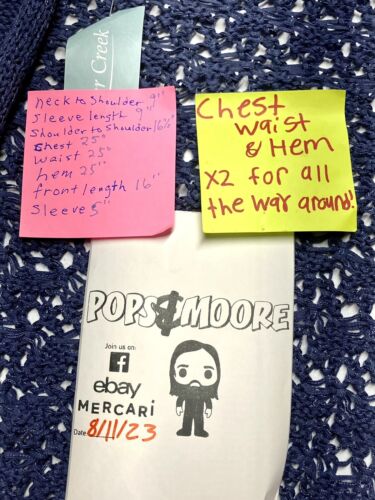 r Creek
neck to Shoulder 9"
Sleeve length 9"
Shoulder to Shoulder 16½"
Chest 25"
waist 25"
hem 25"
front length 16"
Sleeve 5"
Chest
Waist
& Hem
X2 for all
the way around!
POPS & MOORE
Join us on:
f
ebay
MERCARI
Date 8/11/23